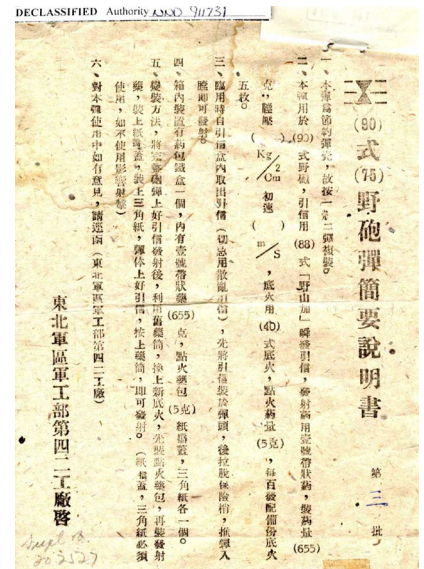 DECLASSIFIED Authority NND 911731
(90)式(75)野砲彈簡要說明書
第三批
一、本彈為節約彈壳,故按一壳二彈複裝。
二、本彈用於(90)式野砲,引信用(88)式「野山加」瞬發引信,發射藥用壹號帶狀藥,裝藥量(655)
克,膛壓( )Kg/Cm² 初速( )m/S,底火用(40)式底火,點火藥量(5克),每百發配備份底火
五枚。
三、臨用時自引信盒內取出引信(切忌用散亂引信),先將引信裝於彈頭,後拉脫保險梢,推彈入
膛即可發射。
四、箱內裝置有葯包鐵盒一個,內有壹號帶狀藥(655)克,點火藥包(5克)紙檔蓋,三角紙各一個。
五、複裝方法,將完整砲彈上好引信發射後,利用舊藥筒,換上新底火,先裝點火藥包,再裝發射
藥,裝上紙檔蓋,裝上三角紙,彈体上好引信,按上藥筒,即可發射。(紙檔蓋,三角紙必須
使用,如不使用影響射擊)
六、對本彈使用中如有意見,請逕函(東北軍區軍工部第四二工廠)
東北軍區軍工部第四二工廠啓
202527